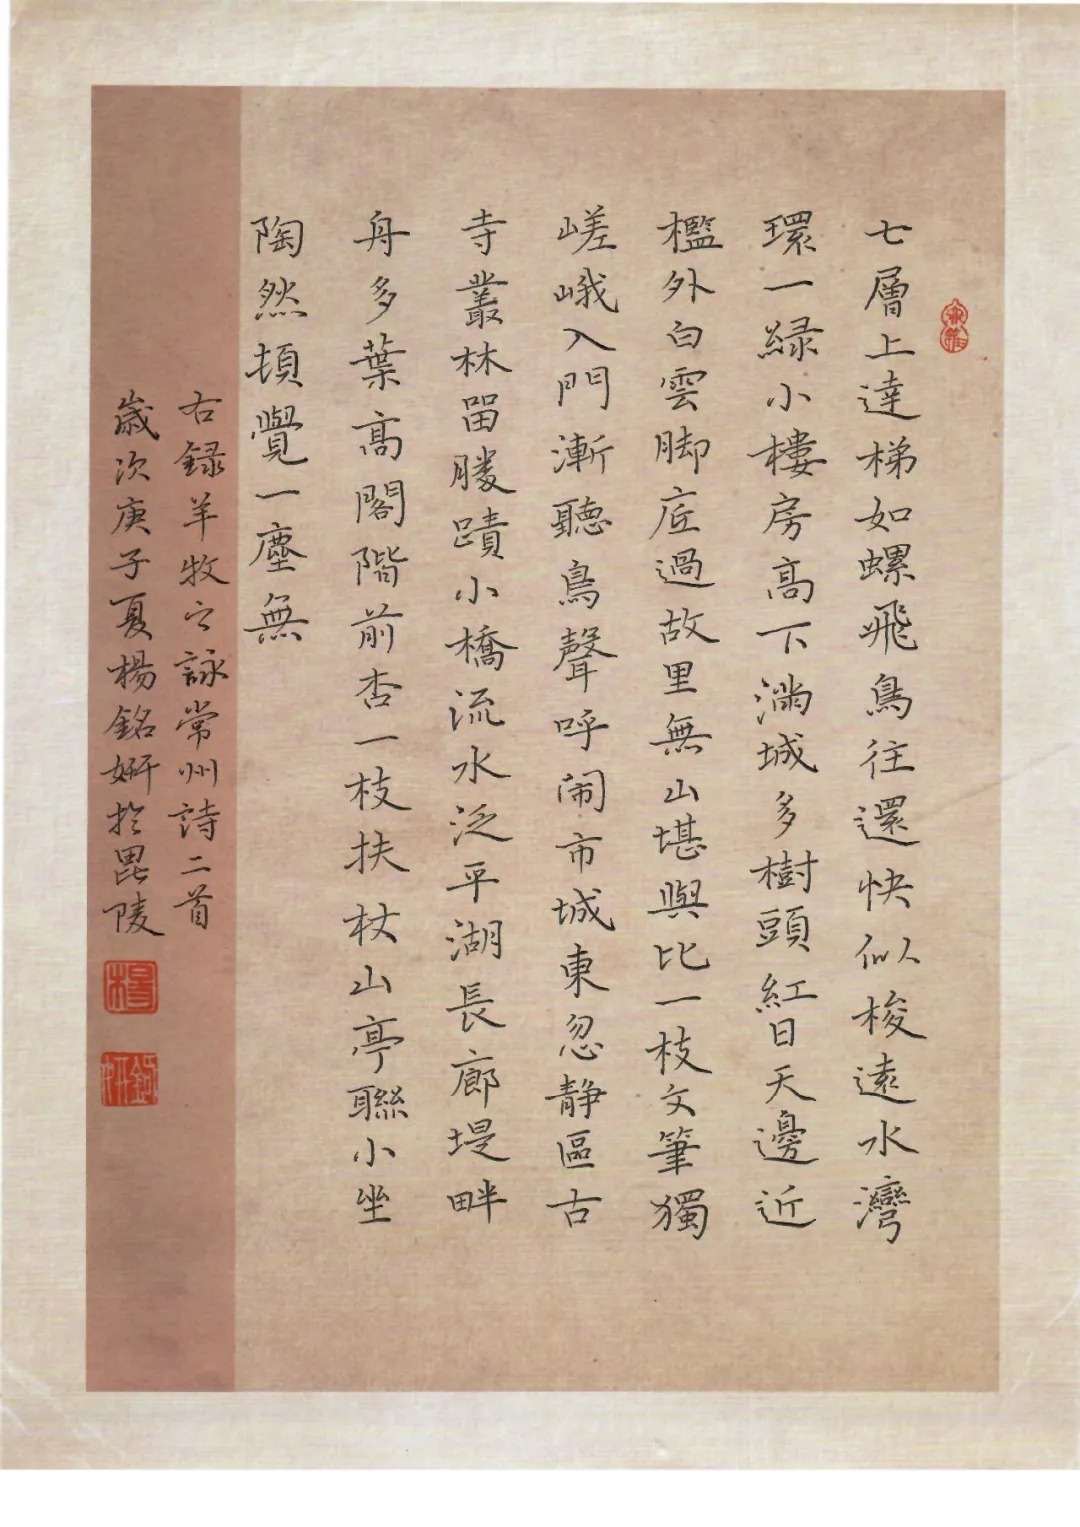 七層上達梯如螺飛鳥往還快似梭遠水灣
環一緑小樓房高下滿城多樹頭紅日天邊近
檻外白雲脚底過故里無山堪與比一枝文筆獨
嵯峨入門漸聽鳥聲呼闹市城東忽静區古
寺叢林留勝蹟小橋流水泛平湖長廊堤畔
舟多葉高閣階前杏一枝扶杖山亭聯小坐
陶然頓覺一塵無
右録羊牧之詠常州詩二首
歲次庚子夏楊銘妍於毘陵